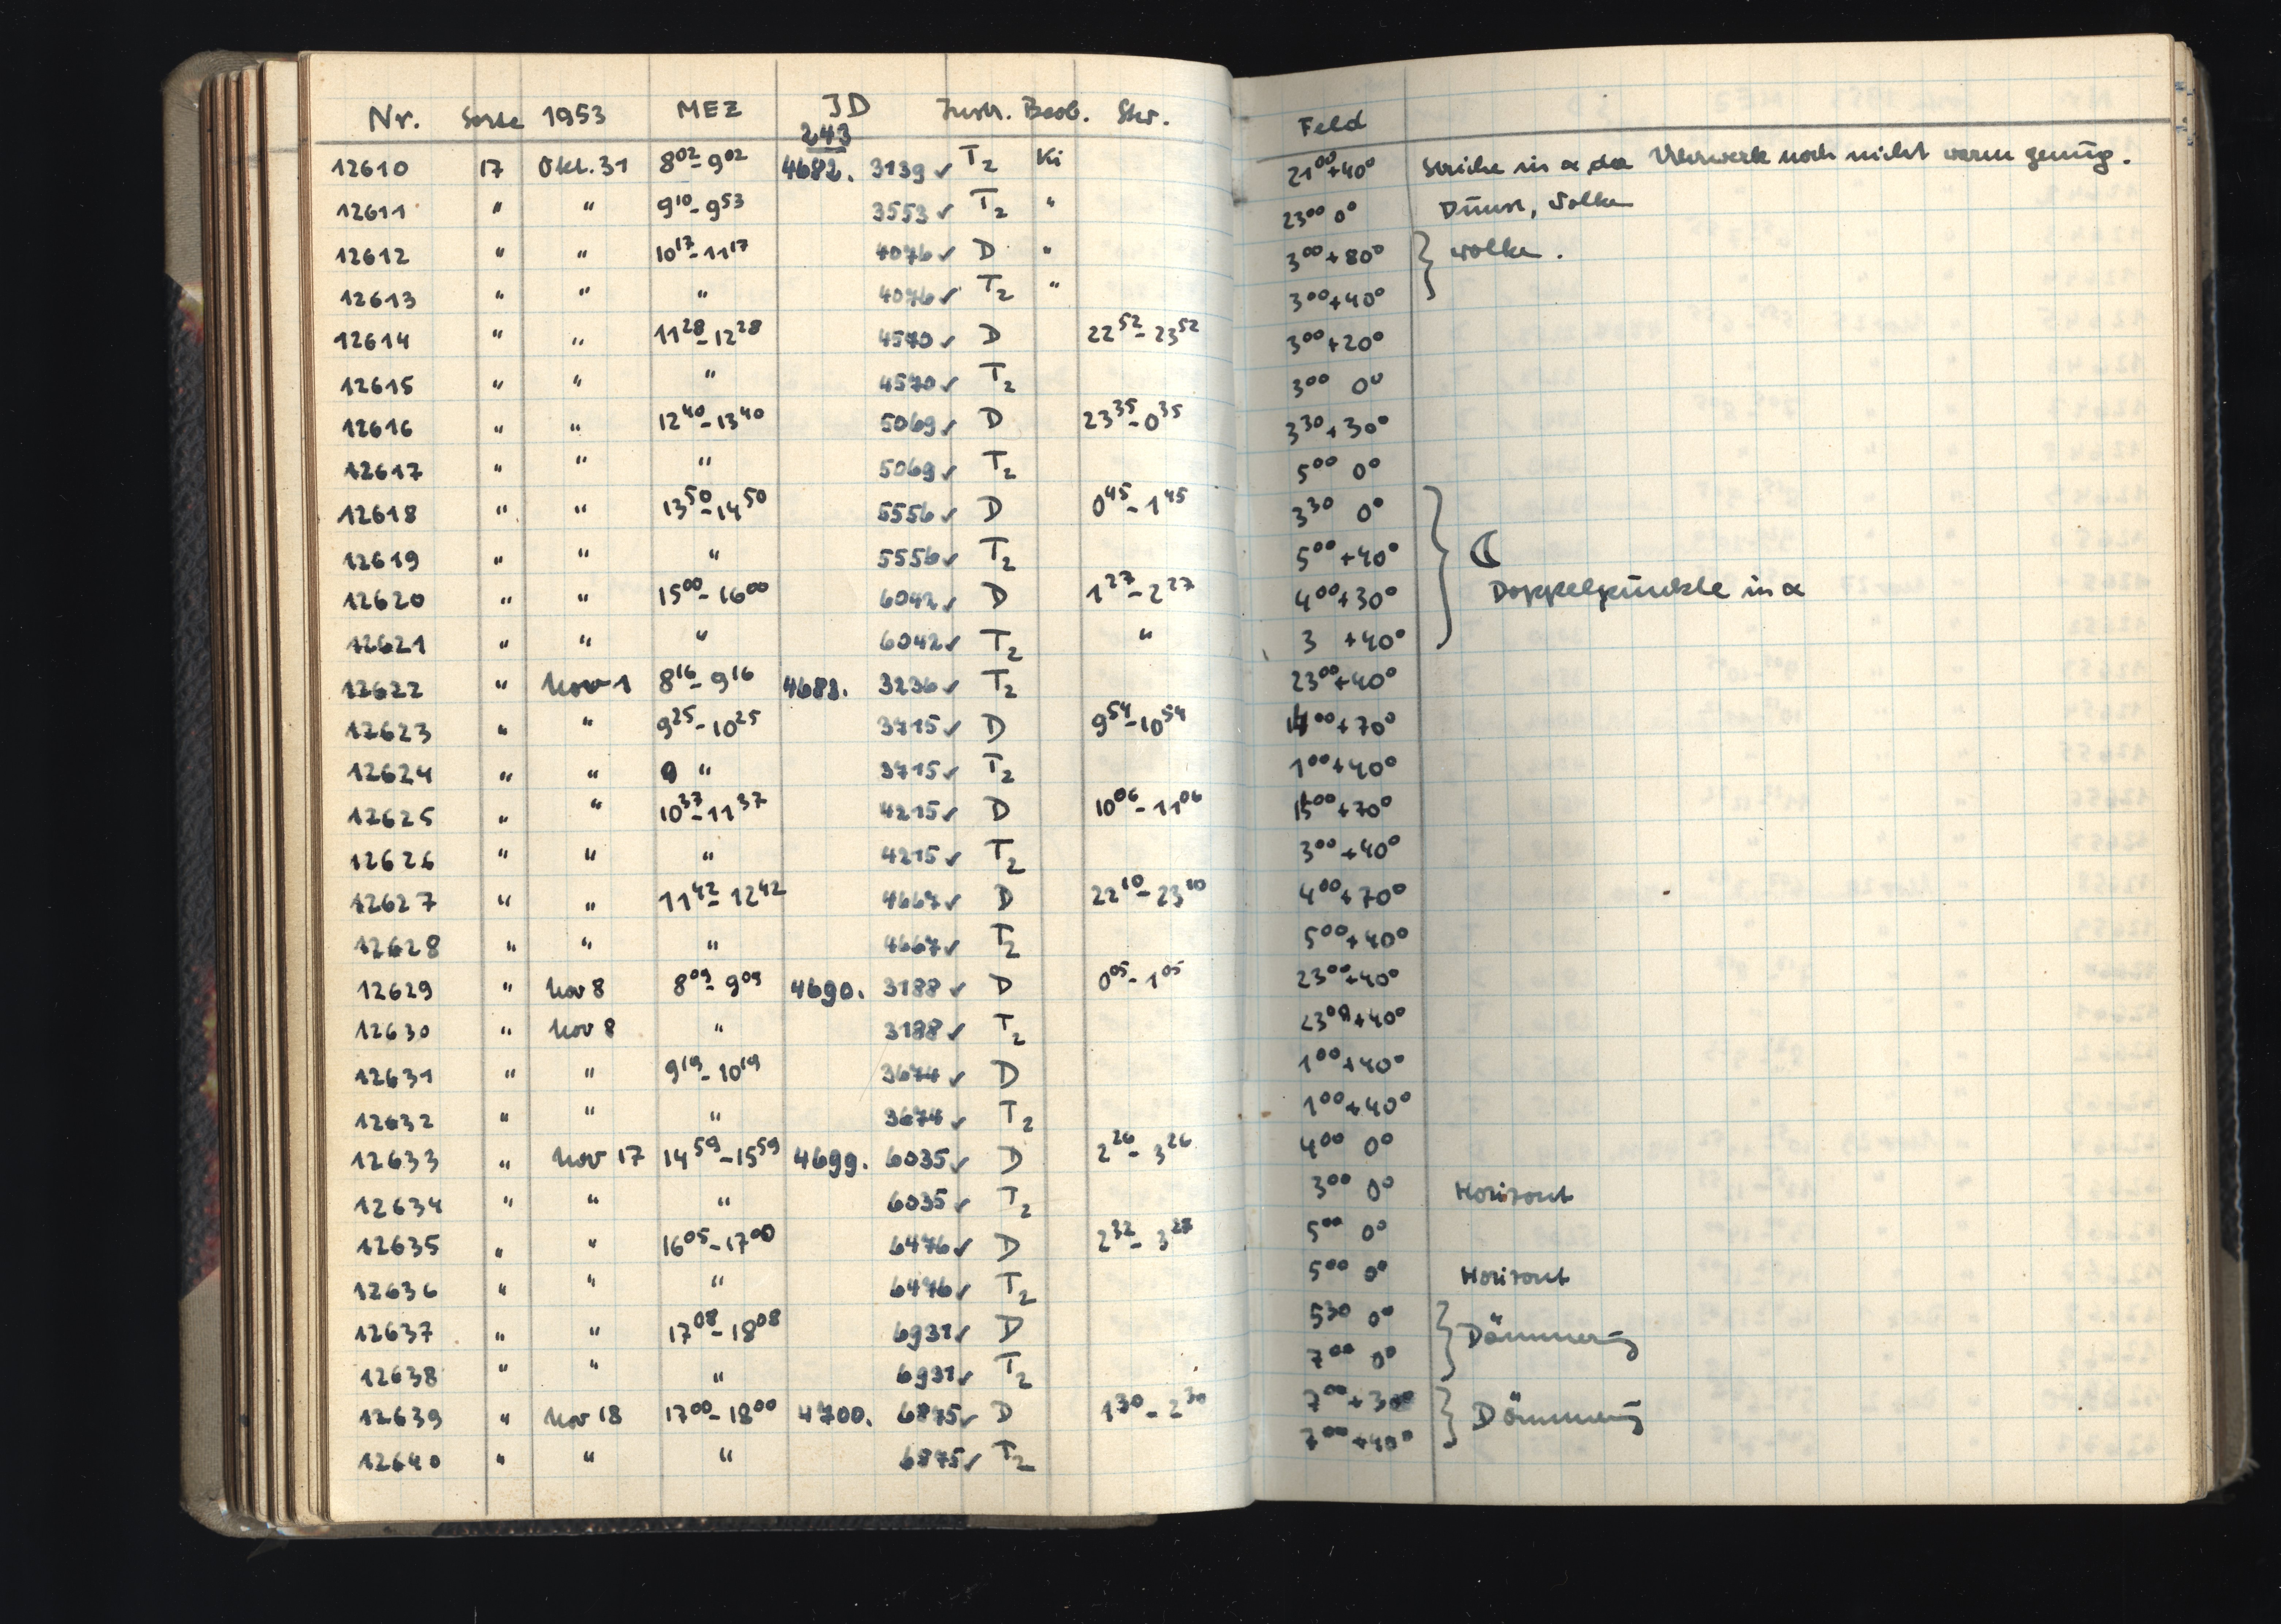 Nr. Sorte 1953 MEZ JD Instr. Beob. Skr. Feld
243
12610 17 Okt. 31 8⁰²-9⁰² 4682. 3139 ✓ T₂ Ki 21⁰⁰+40° Striche in α da Uhrwerk noch nicht warm genug.
12611 " " 9¹⁰-9⁵³ 3553 ✓ T₂ " 23⁰⁰ 0° Dunst, Wolken
12612 " " 10¹⁷-11¹⁷ 4076 ✓ D " 3⁰⁰+80° } Wolken.
12613 " " " 4076 ✓ T₂ " 3⁰⁰+40°
12614 " " 11²⁸-12²⁸ 4570 ✓ D 22⁵²-23⁵² 3⁰⁰+20°
12615 " " " 4570 ✓ T₂ 3⁰⁰ 0°
12616 " " 12⁴⁰-13⁴⁰ 5069 ✓ D 23³⁵-0³⁵ 3³⁰+30°
12617 " " " 5069 ✓ T₂ 5⁰⁰ 0°
12618 " " 13⁵⁰-14⁵⁰ 5556 ✓ D 0⁴⁵-1⁴⁵ 3³⁰ 0°
12619 " " " 5556 ✓ T₂ 5⁰⁰+40° } ☾
12620 " " 15⁰⁰-16⁰⁰ 6042 ✓ D 1²⁷-2²⁷ 4⁰⁰+30° Doppelpunkte in α
12621 " " " 6042 ✓ T₂ " 3 +40°
12622 " Nov 1 8¹⁶-9¹⁶ 4683. 3236 ✓ T₂ 23⁰⁰+40°
12623 " " 9²⁵-10²⁵ 3715 ✓ D 9⁵⁴-10⁵⁴ 14⁰⁰+70°
12624 " " " 3715 ✓ T₂ 1⁰⁰+40°
12625 " " 10³⁷-11³⁷ 4215 ✓ D 10⁰⁶-11⁰⁶ 15⁰⁰+70°
12626 " " " 4215 ✓ T₂ 3⁰⁰+40°
12627 " " 11⁴²-12⁴² 4667 ✓ D 22¹⁰-23¹⁰ 4⁰⁰+70°
12628 " " " 4667 ✓ T₂ 5⁰⁰+40°
12629 " Nov 8 8⁰⁹-9⁰⁹ 4690. 3188 ✓ D 0⁰⁵-1⁰⁵ 23⁰⁰+40°
12630 " Nov 8 " 3188 ✓ T₂ 23⁰⁰+40°
12631 " " 9¹⁹-10¹⁹ 3674 ✓ D 1⁰⁰+40°
12632 " " " 3674 ✓ T₂ 1⁰⁰+40°
12633 " Nov 17 14⁵⁹-15⁵⁹ 4699. 6035 ✓ D 2²⁶-3²⁶ 4⁰⁰ 0°
12634 " " " 6035 ✓ T₂ 3⁰⁰ 0° Horizont
12635 " " 16⁰⁵-17⁰⁰ 6476 ✓ D 2³²-3²⁷ 5⁰⁰ 0°
12636 " " " 6476 ✓ T₂ 5⁰⁰ 0° Horizont
12637 " " 17⁰⁸-18⁰⁸ 6931 ✓ D 5³⁰ 0° } Dämmerung
12638 " " " 6931 ✓ T₂ 7⁰⁰ 0°
12639 " Nov 18 17⁰⁰-18⁰⁰ 4700. 6875 ✓ D 1³⁰-2³⁰ 7⁰⁰+30° } Dämmerung
12640 " " " 6875 ✓ T₂ 7⁰⁰+40°